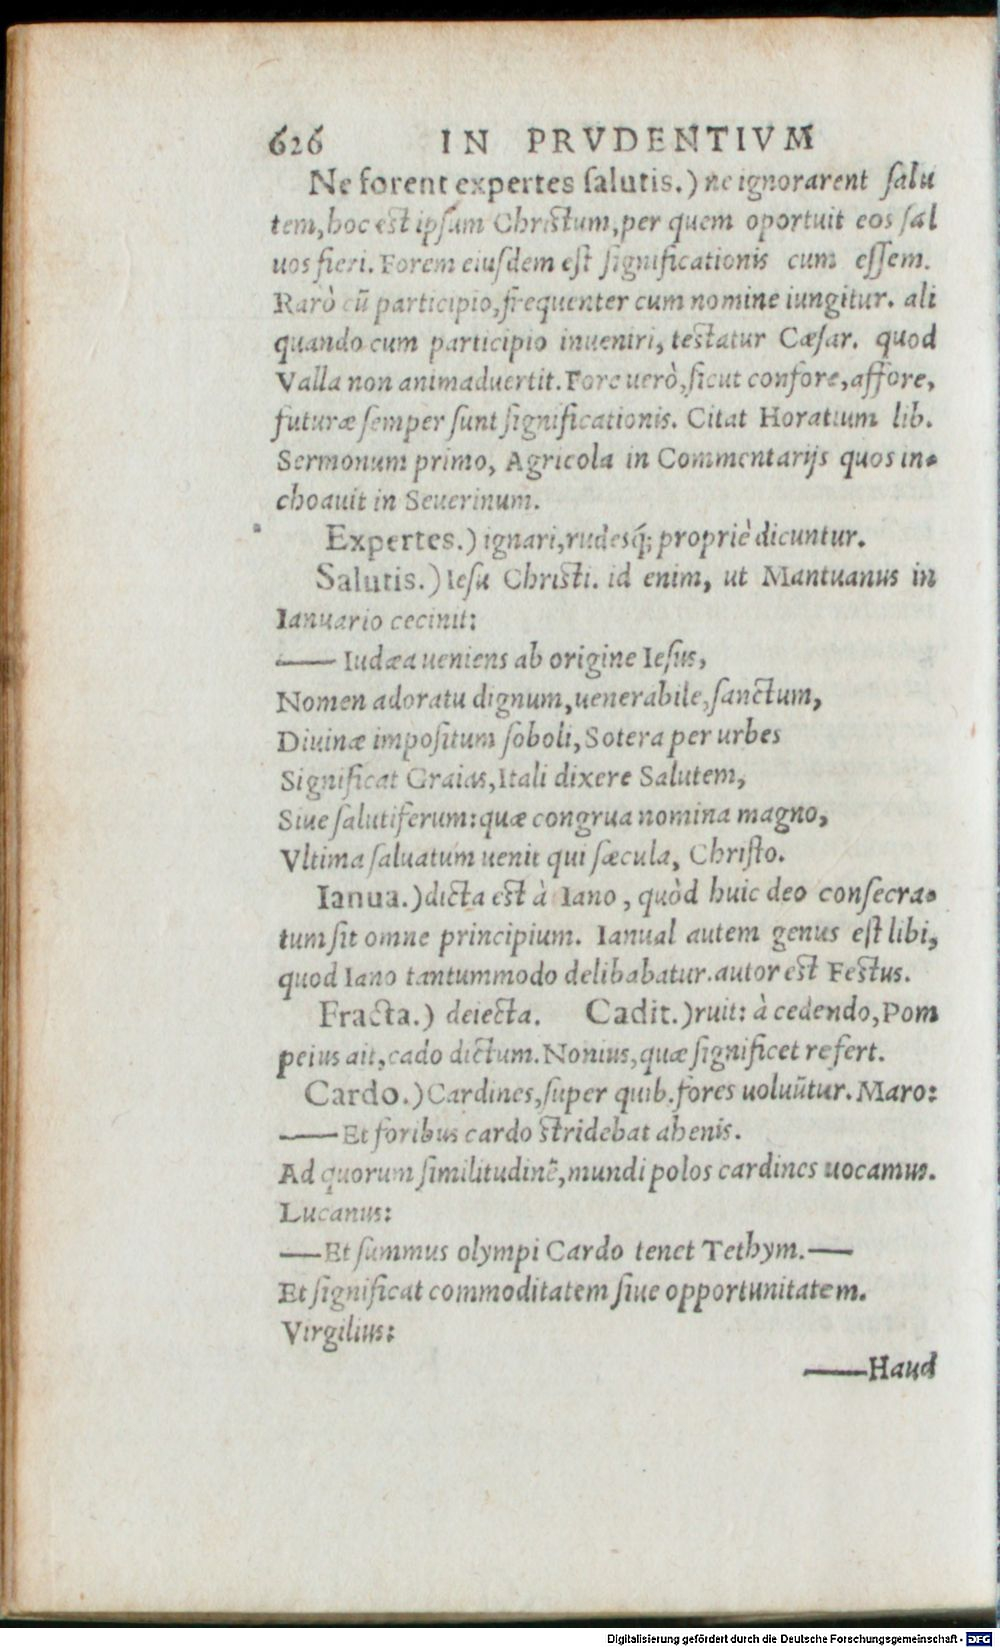 626 IN PRVDENTIVM
Ne forent expertes ſalutis.) ne ignorarent ſalu
tem, hoc est ipſum Christum, per quem oportuit eos ſal
uos fieri. Forem eiuſdem eſt ſignificationis cum eſſem.
Rarò cū participio, frequenter cum nomine iungitur. ali
quando cum participio inueniri, testatur Cæſar. quod
Valla non animaduertit. Fore uerò, ſicut confore, affore,
futuræ ſemper ſunt ſignificationis. Citat Horatium lib.
Sermonum primo, Agricola in Commentarijs quos in-
choauit in Seuerinum.
Expertes.) ignari, rudesq́; propriè dicuntur.
Salutis.) Ieſu Christi. id enim, ut Mantuanus in
Ianuario cecinit:
—— Iudæa ueniens ab origine Ieſus,
Nomen adoratu dignum, uenerabile, ſanctum,
Diuinæ impoſitum ſoboli, Sotera per urbes
Significat Graias, Itali dixere Salutem,
Siue ſalutiferum: quæ congrua nomina magno,
Vltima ſaluatum uenit qui ſæcula, Chriſto.
Ianua.) dicta est à Iano, quòd huic deo conſecra-
tum ſit omne principium. Ianual autem genus eſt libi,
quod Iano tantummodo delibabatur. autor est Festus.
Fracta.) deiecta. Cadit.) ruit: à cedendo, Pom
peius ait, cado dictum. Nonius, quæ ſignificet refert.
Cardo.) Cardines, ſuper quib. fores uoluūtur. Maro:
—— Et foribus cardo stridebat ahenis.
Ad quorum ſimilitudinē, mundi polos cardines uocamus.
Lucanus:
—— Et ſummus olympi Cardo tenet Tethym. ——
Et ſignificat commoditatem ſiue opportunitatem.
Virgilius:
—— Haud
Digitalisierung gefördert durch die Deutsche Forschungsgemeinschaft - DFG